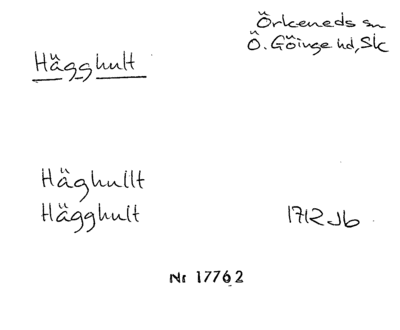 Örkeneds sn
Ö. Göinge hd, Sk
Hägghult
Häghullt
Hägghult 1712 Jb
Nr 17762